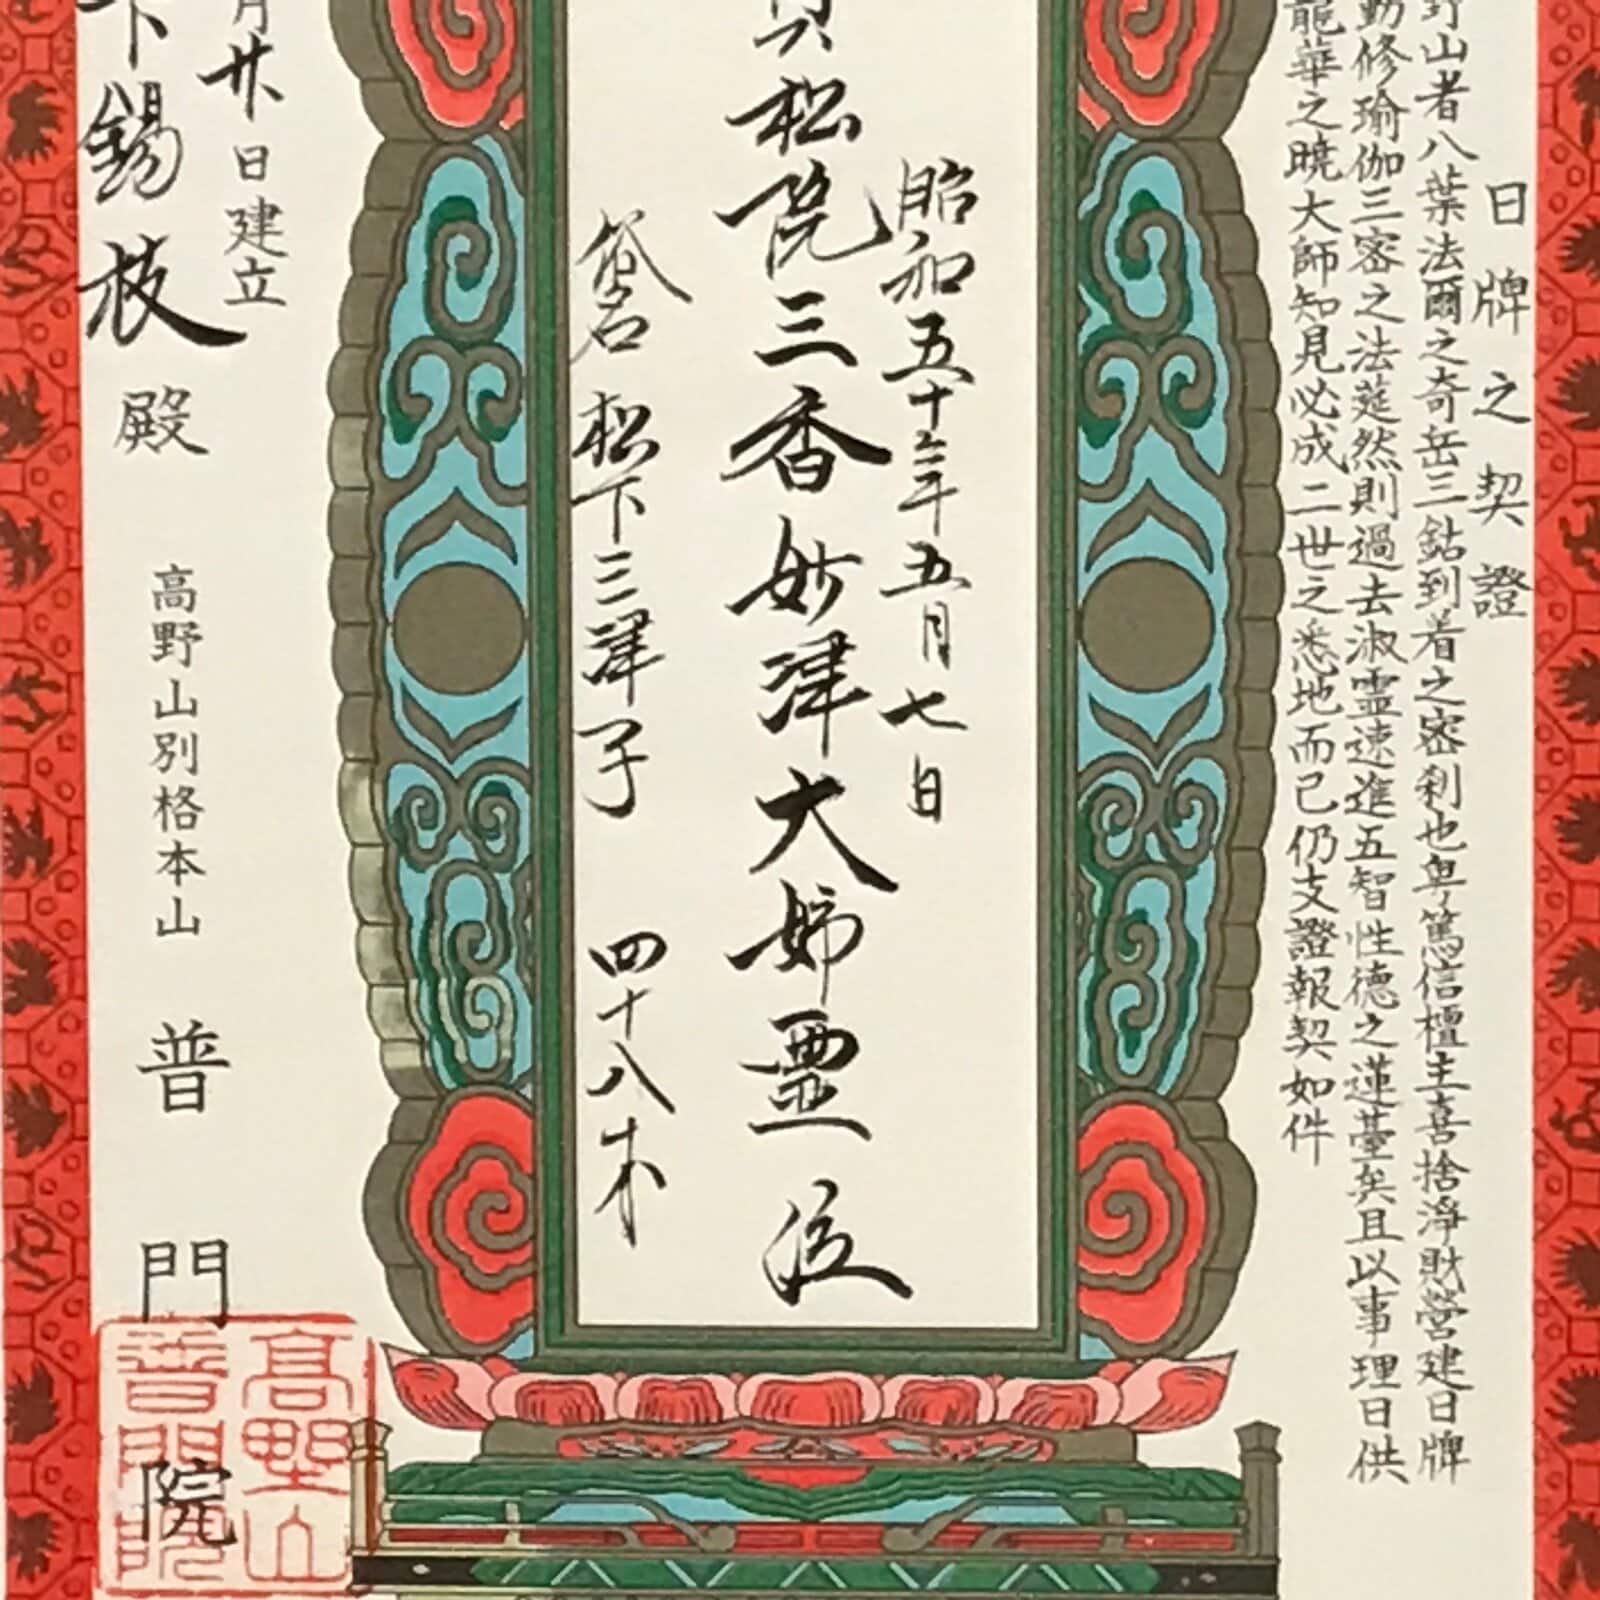 日牌之契證
野山者八葉法爾之奇岳三鈷到着之密刹也粤篤信檀主喜捨淨財營建日牌
勤修瑜伽三密之法莚然則過去淑霊速進五智性德之蓮臺矣且以事理日供
龍華之曉大師知見必成二世之悉地而已仍支證報契如件
昭和五十三年五月七日
貞松院三香妙津大姉霊位
俗名 松下三津子 四十八才
月廿日建立
下錫枝殿
高野山別格本山 普門院
高野山
普門院